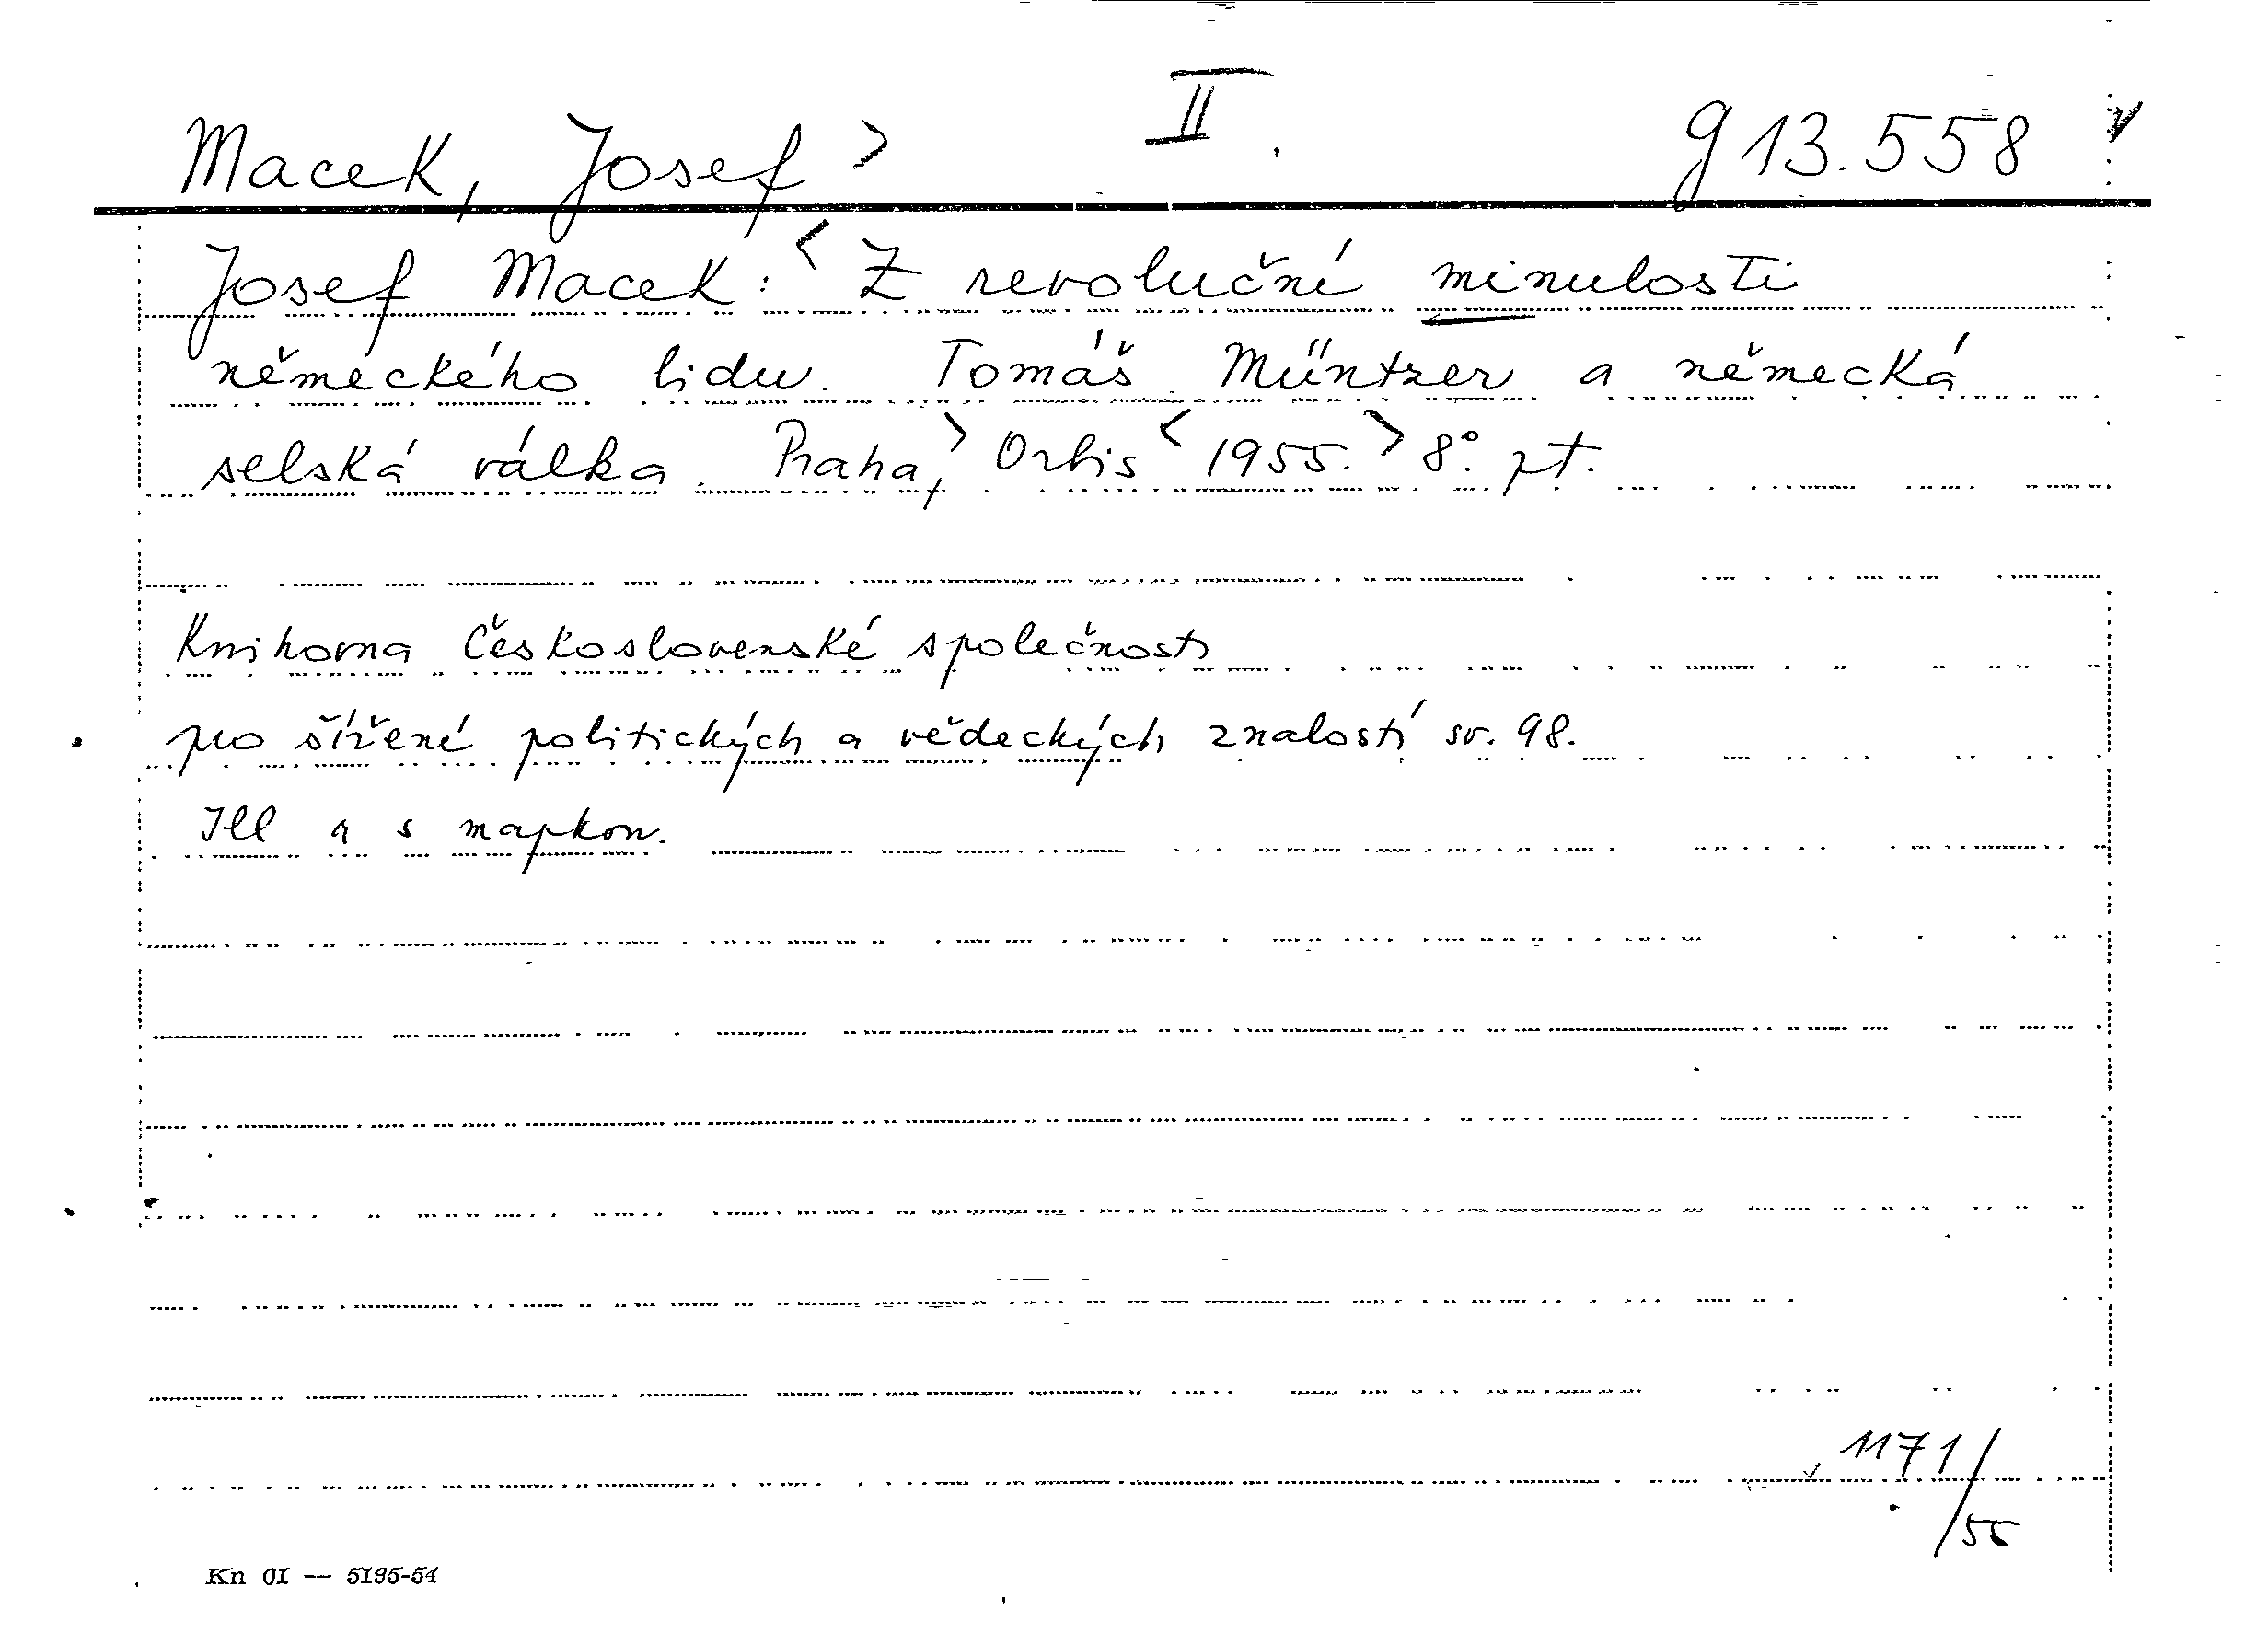 II.
Macek, Josef> g 13.558
Josef Macek: <Z revoluční minulosti
německého lidu. Tomáš Müntzer a německá
selská válka. Praha,> Orbis <1955.> 8°. pt.
Knihovna Československé společnosti
pro šířené politických a vědeckých znalostí sv. 98.
Ill a s mapkou.
1171/55
Kn 01 — 5195-54